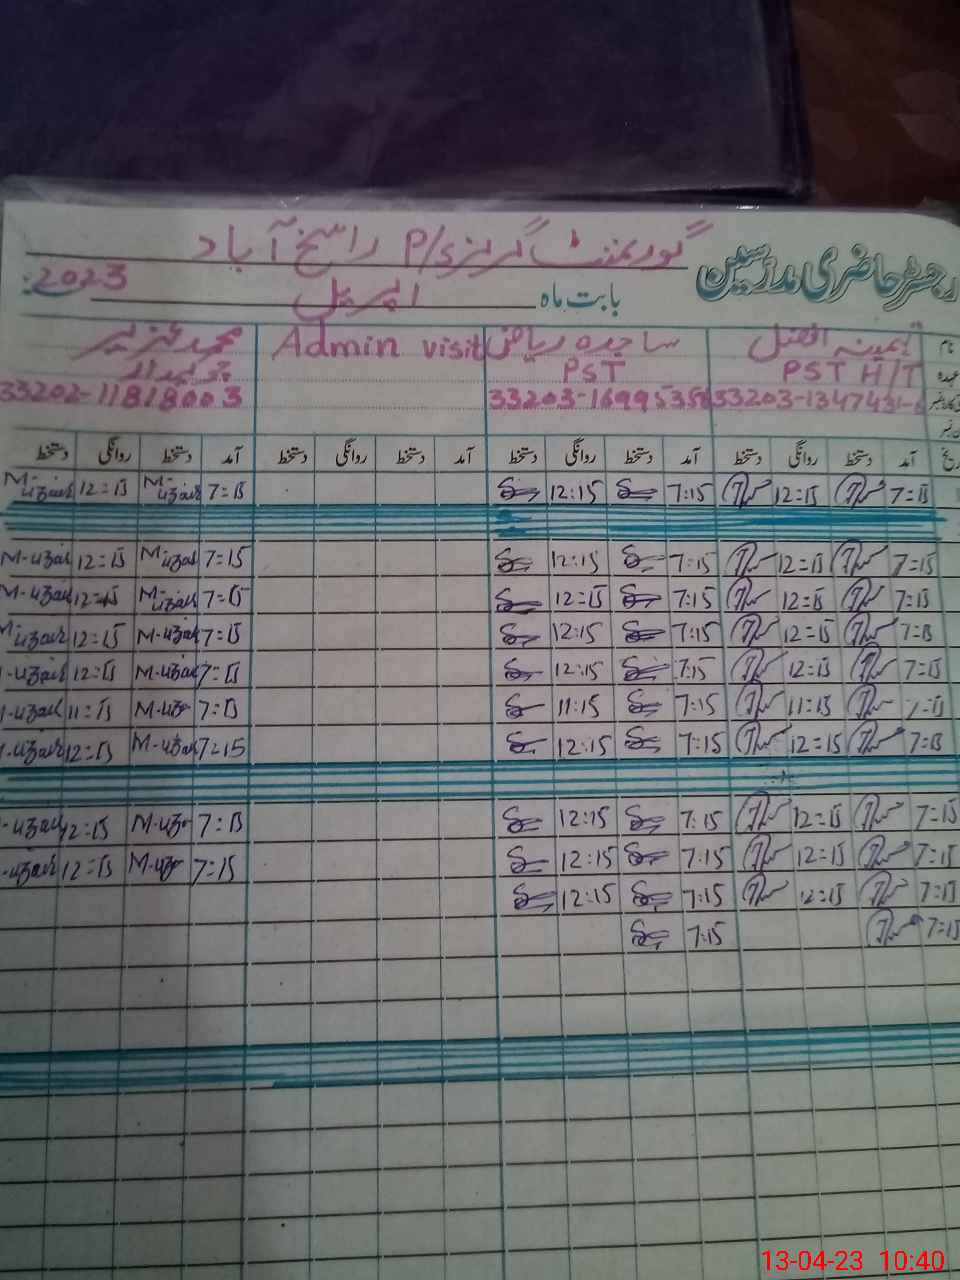 گورنمنٹ گرلز P/S راسخ آباد
رجسٹر حاضری مدرسین
بابت ماہ اپریل 2023
نام تہمینہ افضل ساجدہ ریاض Admin visit محمد عزیر
عہدہ PST H/T PST چوکیدار
33203-1347431-6 33203-1699535 33202-1181800 3
تاریخ آمد دستخط روانگی دستخط آمد دستخط روانگی دستخط آمد دستخط روانگی دستخط آمد دستخط روانگی دستخط
7=15 12=15 7:15 12:15 7=15 M-uzair 12=15 M-uzair
7=15 12=15 7:15 12:15 7=15 M-uzair 12=15 M-uzair
7=15 12=15 7:15 12=15 7=15 M-uzair 12=15 M-uzair
7=15 12=15 7:15 12:15 7=15 M-uzair 12=15 M-uzair
7=15 12=15 7:15 12:15 7=15 M-uzair 12=15 -uzair
7=15 11=15 7:15 11:15 7=15 M-uz 11=15 -uzair
7=15 12=15 7:15 12:15 7=15 M-uzair 12=15 -uzair
7=15 12=15 7:15 12:15 7=15 M-uz 12=15 -uzair
7=15 12=15 7:15 12:15 7=15 M-uz 12=15 -uzair
7=15 12=15 7:15 12:15
7=15 7:15
13-04-23 10:40